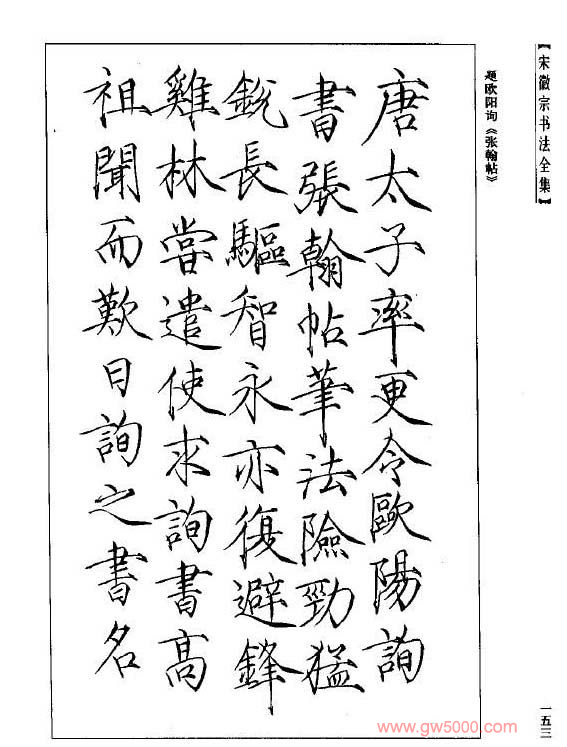 【宋徽宗书法全集】
题欧阳询《张翰帖》
唐太子率更令歐陽詢
書張翰帖筆法險勁猛
銳長驅智永亦復避鋒
雞林嘗遣使求詢書高
祖聞而歎曰詢之書名
一五三
www.gw5000.com